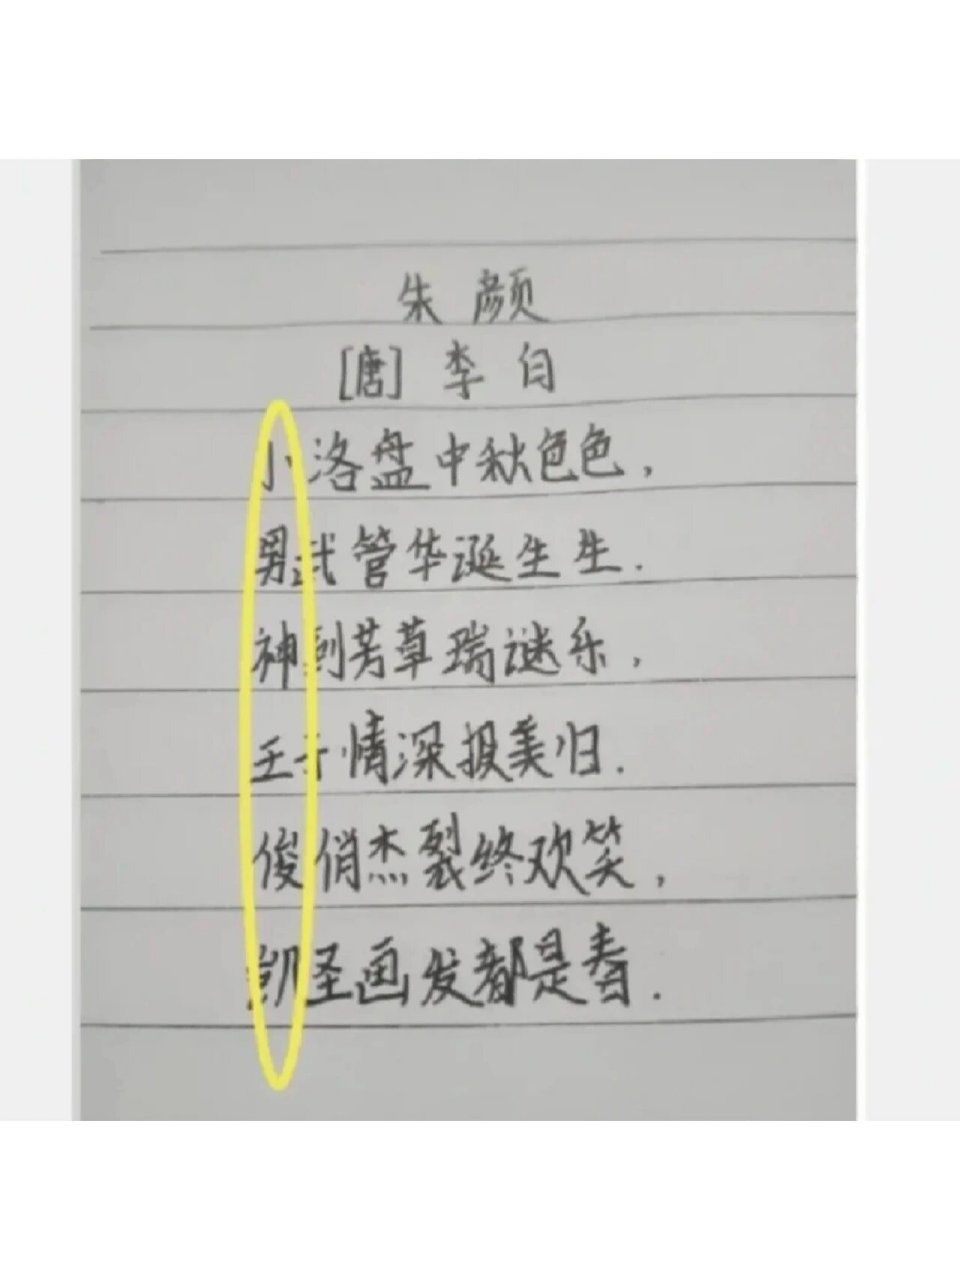 朱颜
[唐] 李白
小洛盘中秋色色，
男武管华诞生生.
神到芳草瑞谜乐，
王于情深报美归.
俊俏杰裂终欢笑，
凯圣画发都是春.